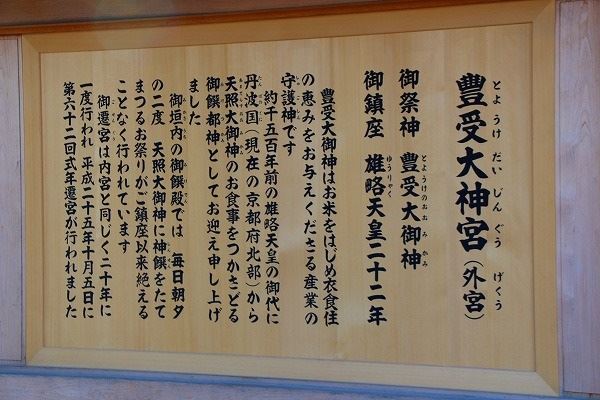 豊受大神宮（外宮）
とようけだいじんぐう　げくう
御祭神　豊受大御神
とようけのおおみかみ
御鎮座　雄略天皇二十二年
ゆうりゃく
豊受大御神はお米をはじめ衣食住
の恵みをお与えくださる産業の
守護神です
約千五百年前の雄略天皇の御代に
丹波国（現在の京都府北部）から
天照大御神のお食事をつかさどる
御饌都神としてお迎え申し上げ
ました
御垣内の御饌殿では　毎日朝夕
の二度　天照大御神に神饌をたて
まつるお祭りがご鎮座以来絶える
ことなく行われています
御遷宮は内宮と同じく二十年に
一度行われ　平成二十五年十月五日に
第六十二回式年遷宮が行われました